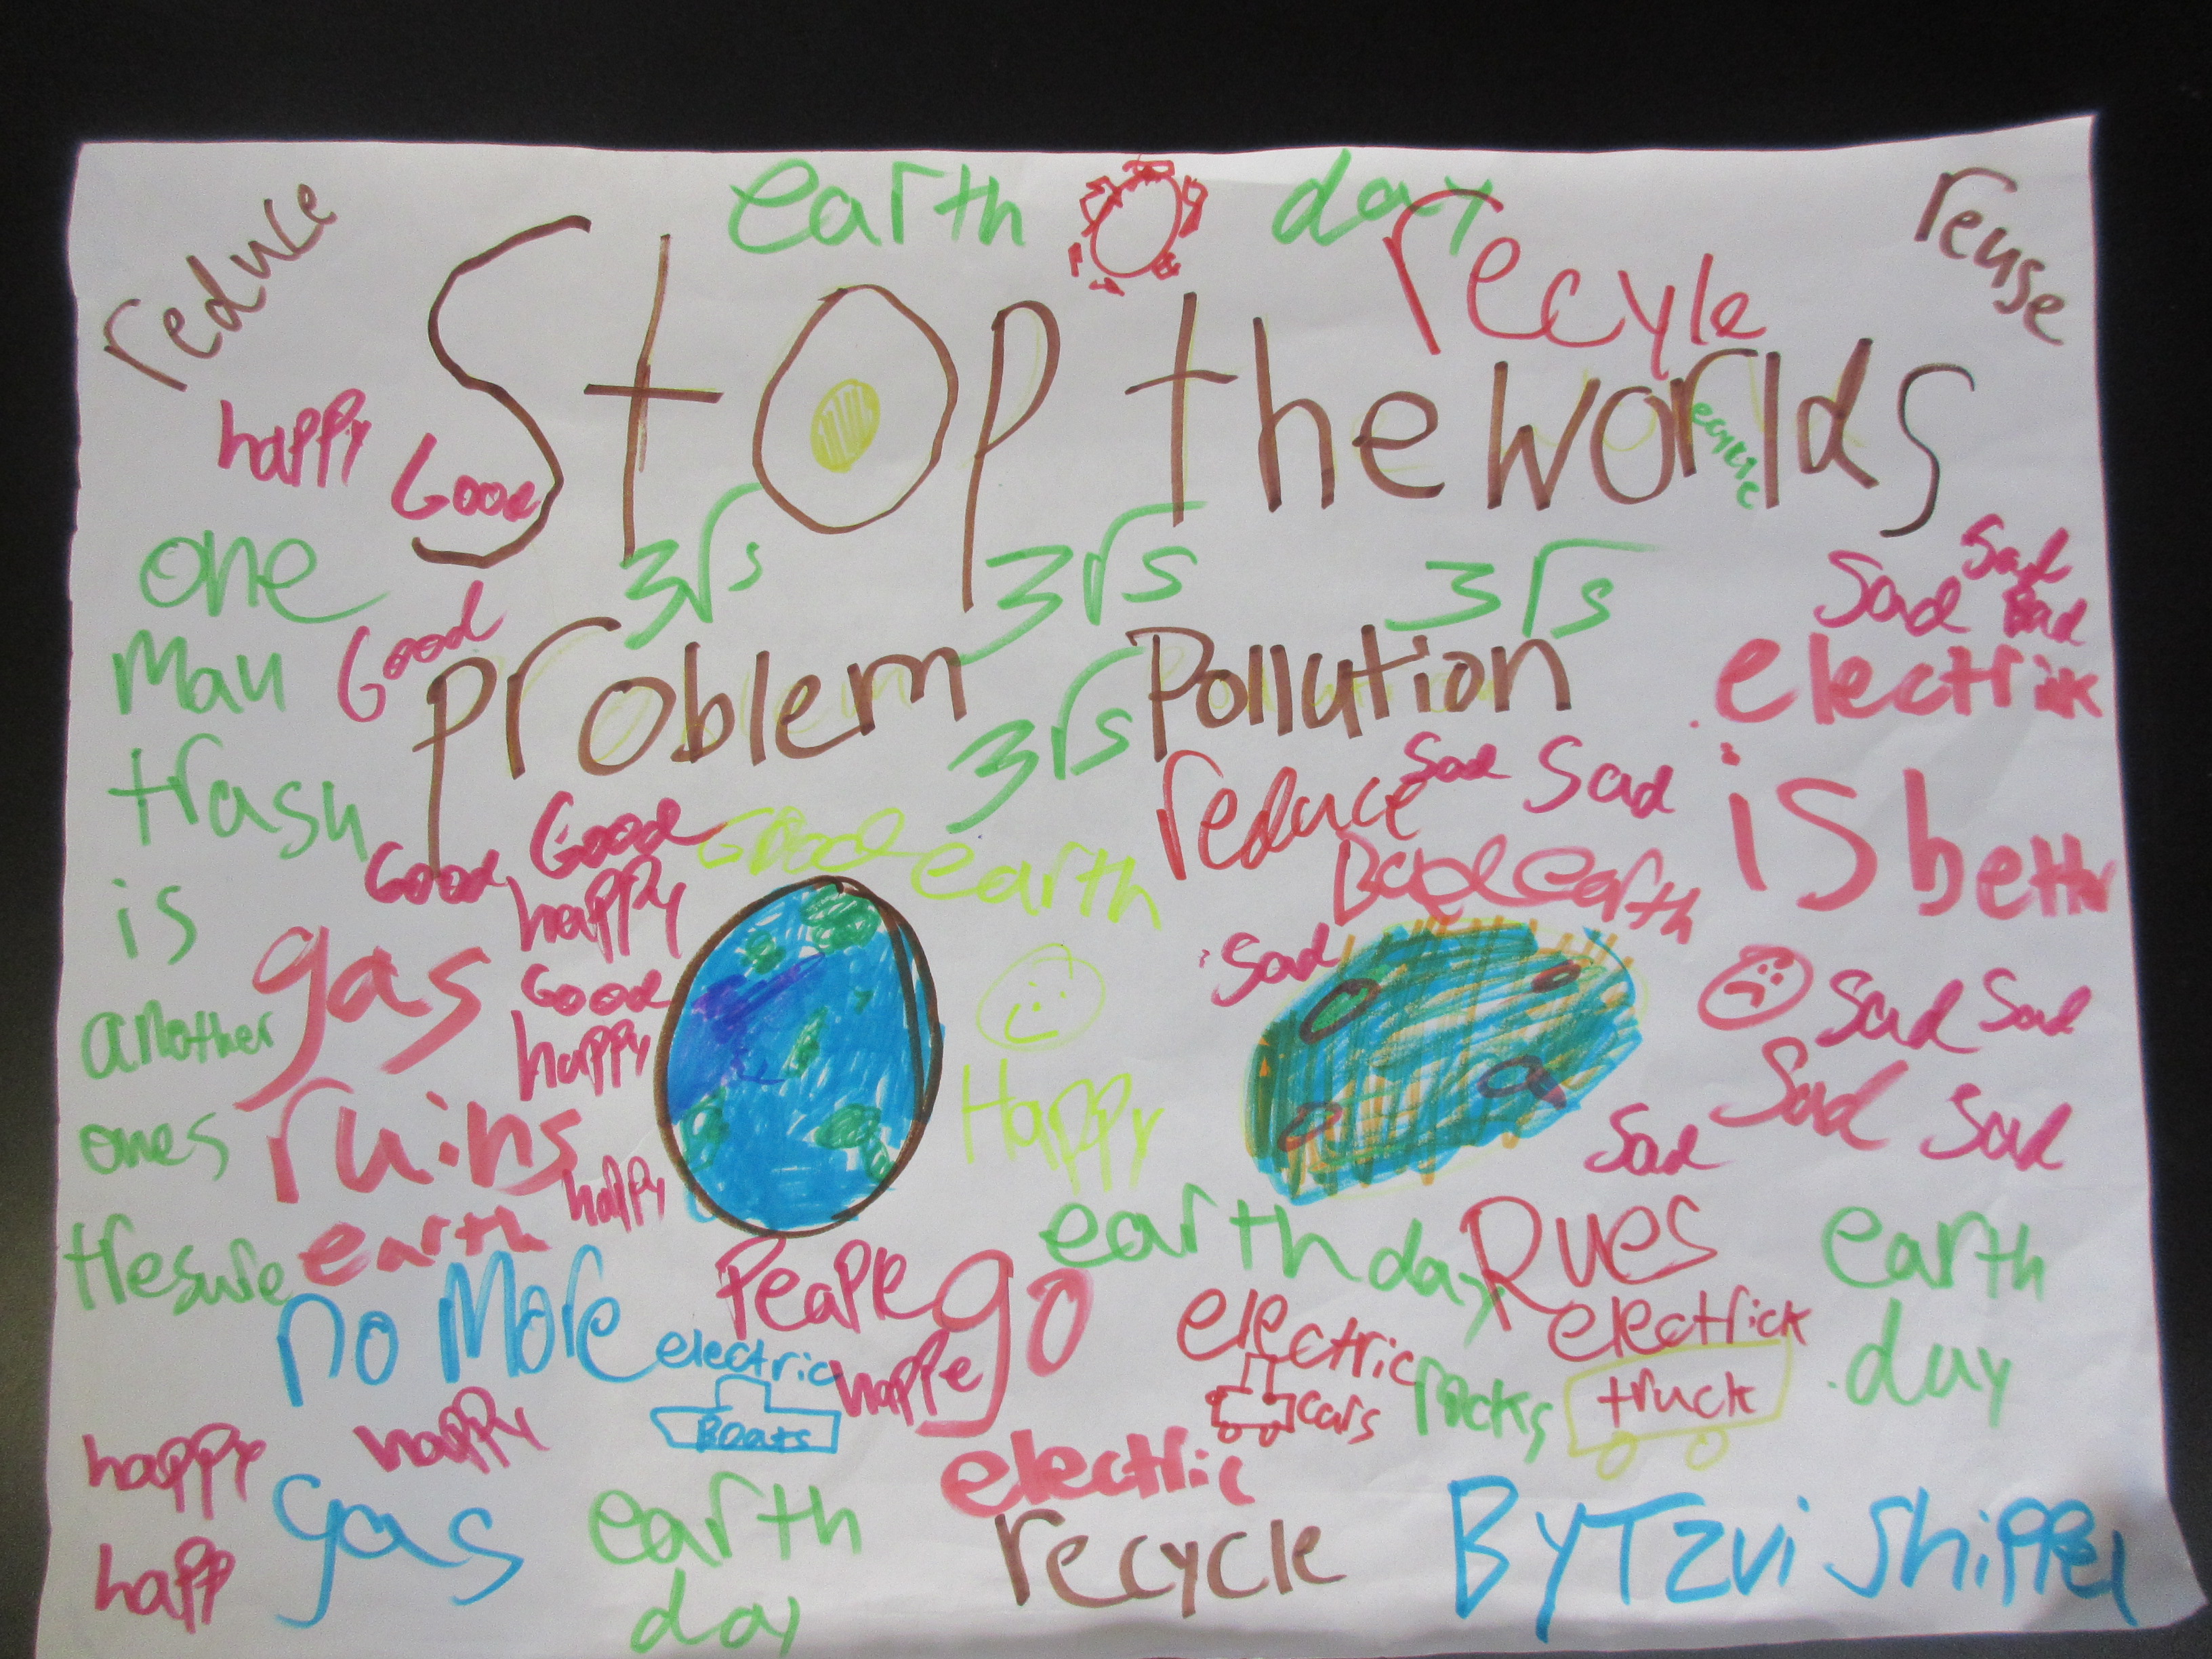 earth day
reduce
recyle
reuse
Stop the worlds
happy
Good
3rs 3rs 3rs
Sad
Sad
Bad
Good
problem Pollution
3rs
one
man
trash
is
another
ones
tresure
electrick
is bettr
reduce
Sad Sad
Good
Good
happy
Good
happy
happy
Good earth
Bad earth
gas
ruins
earth
Happy
Sad
Sad Sad
Sad Sad
Sad
no More
gas
Peaple
happe
go
electric
earth day
Rues
earth
day
electric
Boats
electric
cars
rocks
electrick
truck
happy
happy
happ
earth
day
recycle
By Tzvi Shippel